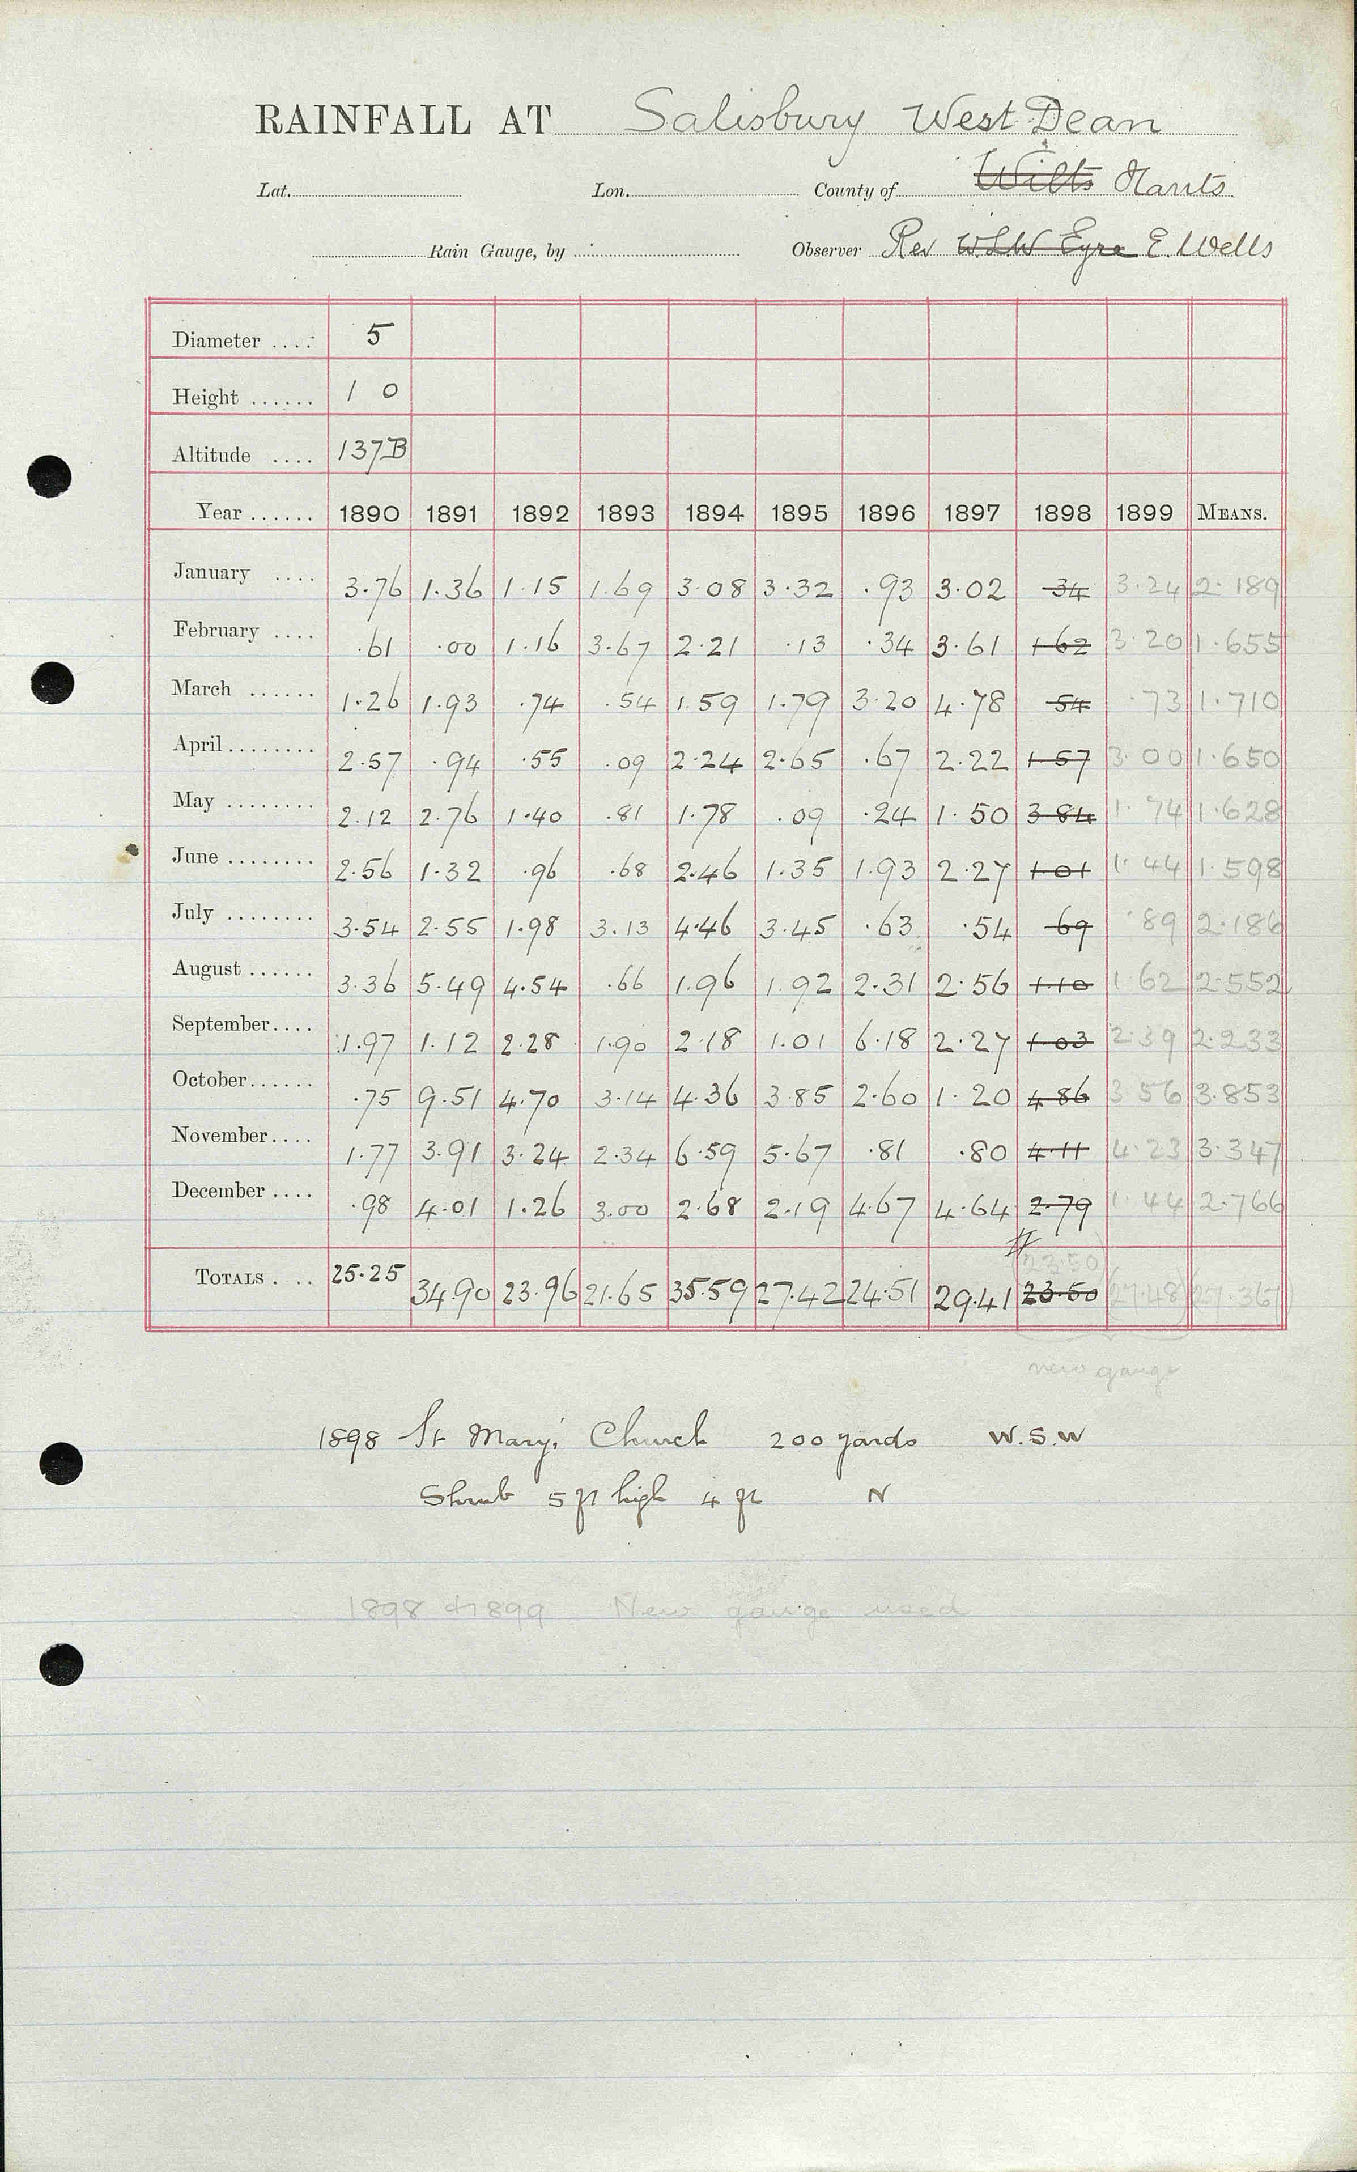 RAINFALL AT Salisbury West Dean
Lat. Lon. County of Wilts Hants
Rain Gauge, by Observer Rev W.L.W Eyre E. Wells
Diameter .... 5
Height ...... 1 0
Altitude .... 137B
Year ...... 1890 1891 1892 1893 1894 1895 1896 1897 1898 1899 MEANS.
January .... 3.76 1.36 1.15 1.69 3.08 3.32 .93 3.02 34 3.24 2.189
February .... .61 .00 1.16 3.67 2.21 .13 .34 3.61 1 62 3.20 1.655
March ...... 1.26 1.93 .74 .54 1.59 1.79 3.20 4.78 54 .73 1.710
April ........ 2.57 .94 .55 .09 2.24 2.65 .67 2.22 1 57 3.00 1.650
May ........ 2.12 2.76 1.40 .81 1.78 .09 .24 1.50 3 84 1.74 1.628
June ........ 2.56 1.32 .96 .68 2.46 1.35 1.93 2.27 1 01 1.44 1.598
July ........ 3.54 2.55 1.98 3.13 4.46 3.45 .63 .54 69 .89 2.186
August ...... 3.36 5.49 4.54 .66 1.96 1.92 2.31 2.56 1.10 1.62 2.552
September .... 1.97 1.12 2.28 1.90 2.18 1.01 6.18 2.27 1 03 2.39 2.233
October ...... .75 9.51 4.70 3.14 4.36 3.85 2.60 1.20 4 86 3.56 3.853
November .... 1.77 3.91 3.24 2.34 6.59 5.67 .81 .80 4.11 4.23 3.347
December .... .98 4.01 1.26 3.00 2.68 2.19 4.67 4.64 2.79 1.44 2.766
(23.50)
TOTALS .... 25.25 34.90 23.96 21.65 35.59 27.42 24.51 29.41 23.50 (27.48) 27.367
new gauge
1898 St Mary's Church 200 yards W.S.W
Shrub 5 ft high 4 ft N
1898 & 1899 New gauge used